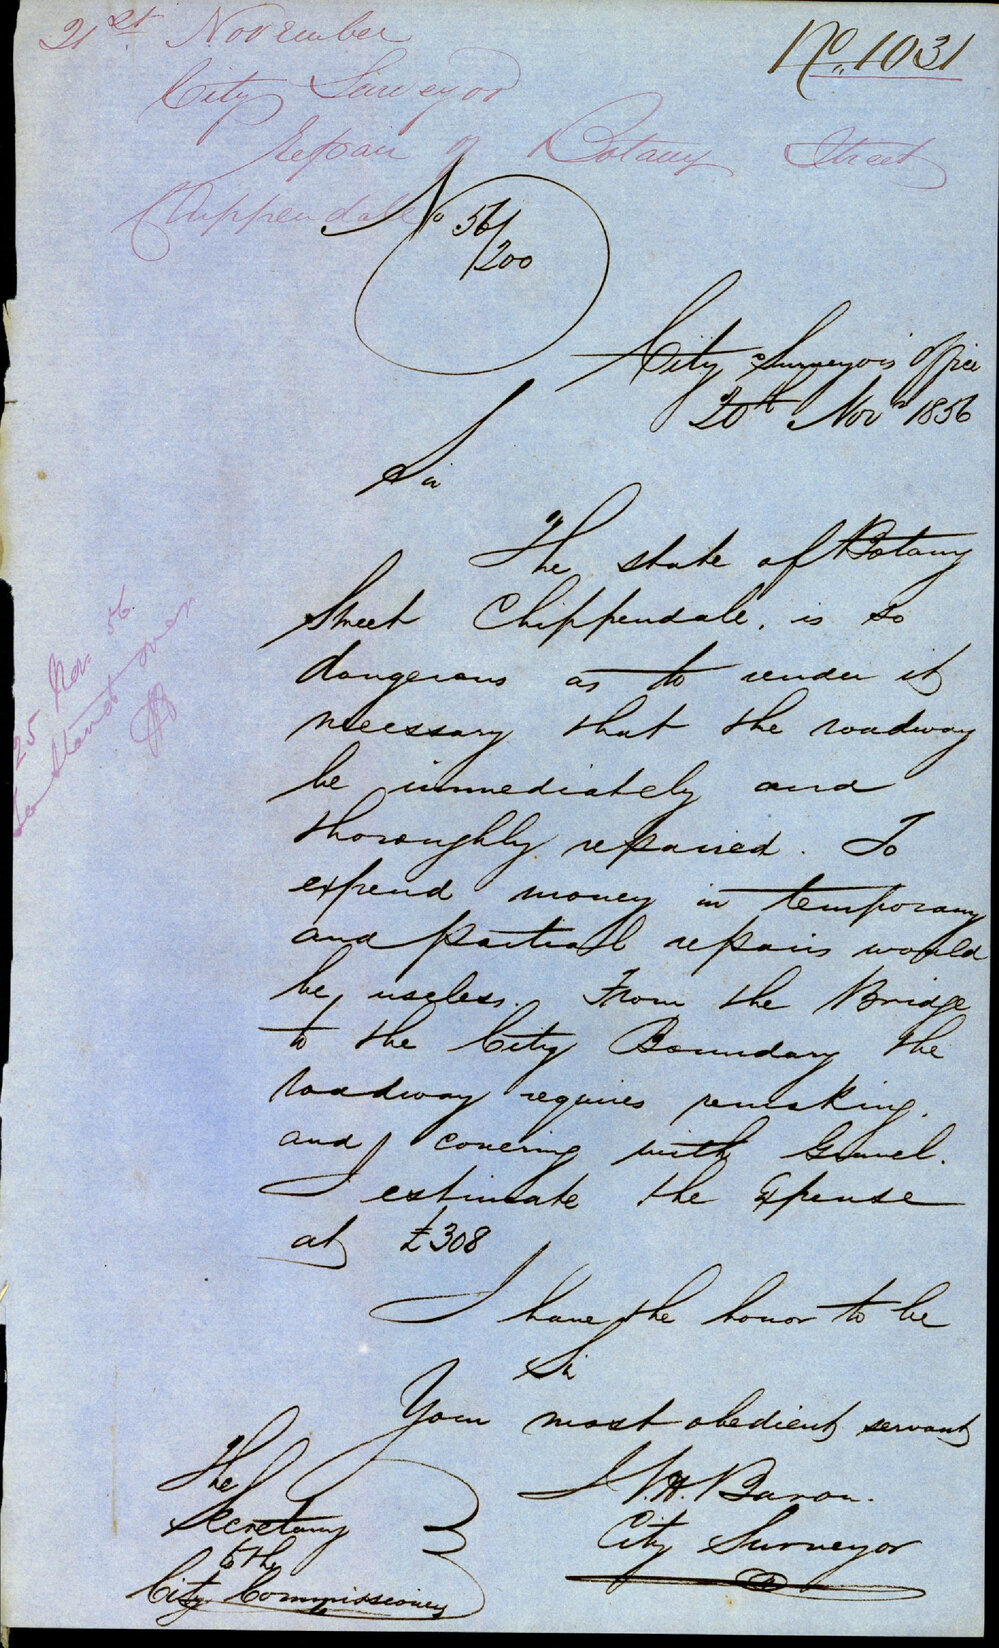 21st November
City Surveyor
Repair of Botany Street
Chippendale
No. 1031
No 56/200
City Surveyor's Office
20th Novr 1856
Sir
The state of Botany
Street Chippendale, is so
dangerous as to render it
necessary that the roadway
be immediately and
thoroughly repaired. To
expend money in temporary
and partial repairs would
be useless. From the Bridge
to the City Boundary the
roadway requires remaking,
and covering with Gravel.
I estimate the Expense
at £308
I have the honor to be
Sir
Your most obedient servant
H. Baron.
City Surveyor
The
Secretary
to the
City Commissioners
25 Nov. 56.
To stand over